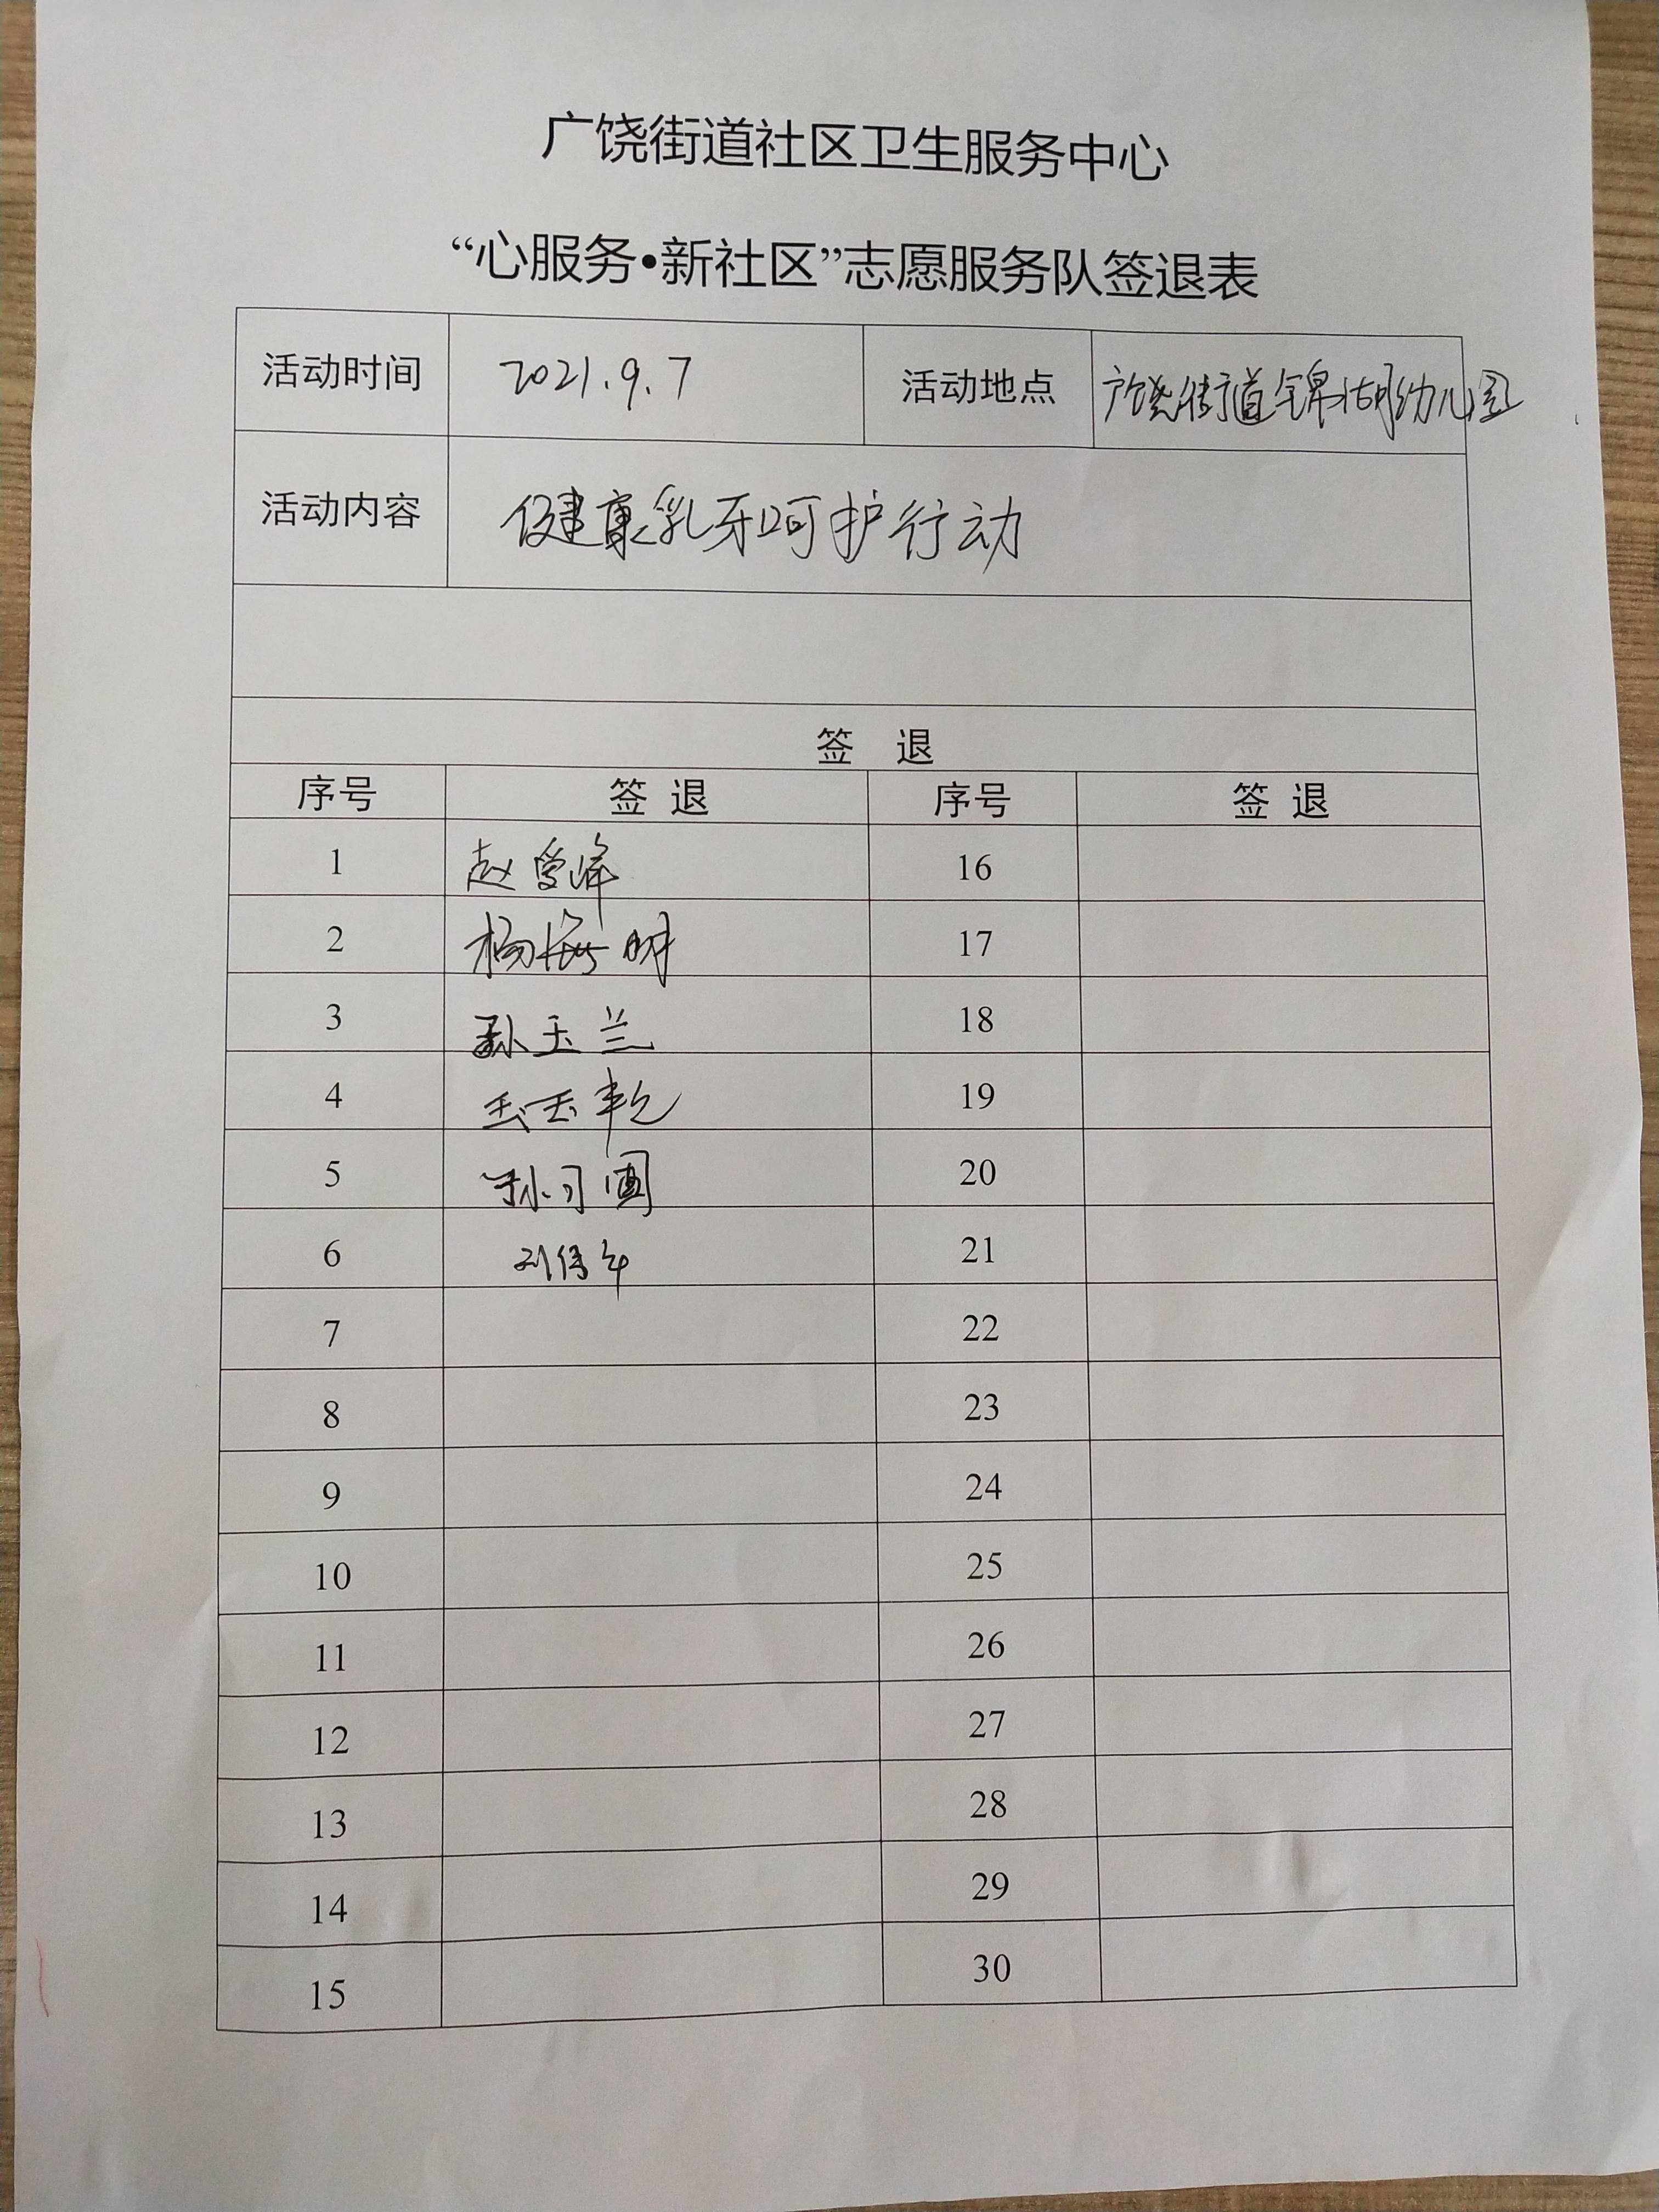 广饶街道社区卫生服务中心
“心服务•新社区”志愿服务队签退表
活动时间 2021.9.7 活动地点 广饶街道锦湖幼儿园
活动内容 健康乳牙呵护行动
签 退
序号 签 退 序号 签 退
1 赵曾峰 16
2 杨海明 17
3 孙玉兰 18
4 19
5 孙习 20
6 刘 21
7 22
8 23
9 24
10 25
11 26
12 27
13 28
14 29
15 30